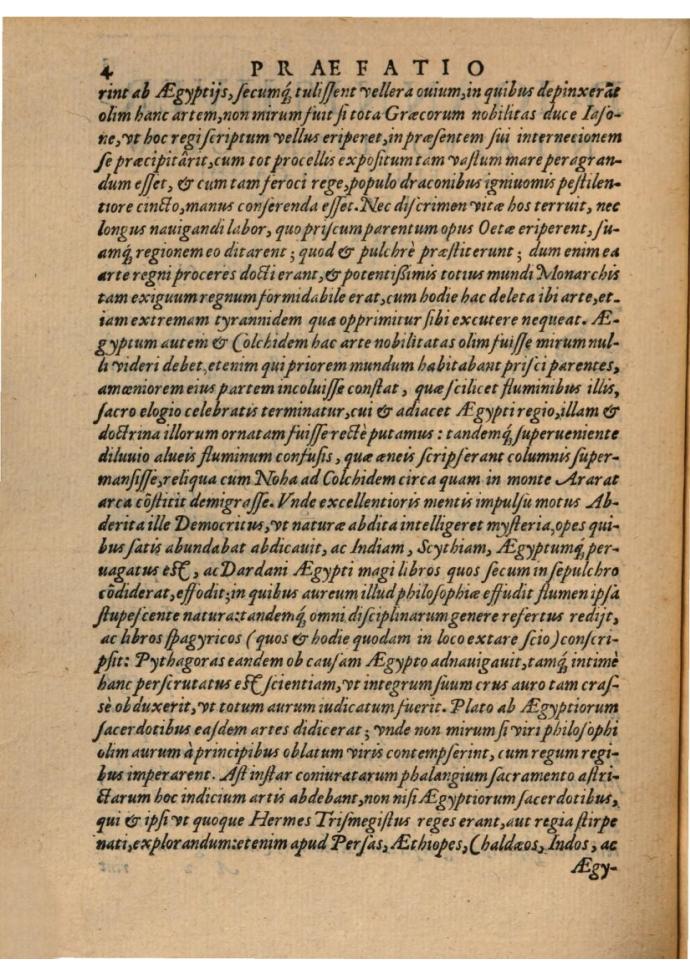 4 PRAEFATIO
rint ab Ægyptijs, secumq́; tulissent vellera ouium, in quibus depinxerāt
olim hanc artem, non mirum fuit si tota Græcorum nobilitas duce Iaso-
ne, vt hoc regi scriptum vellus eriperet, in præsentem sui internecionem
se præcipitârit, cum tot procellis expositum tam vastum mare peragran-
dum esset, & cum tam feroci rege, populo draconibus igniuomis pestilen-
tiore cincto, manus conserenda esset. Nec discrimen vitæ hos terruit, nec
longus nauigandi labor, quo priscum parentum opus Oetæ eriperent, su-
amq́; regionem eo ditarent; quod & pulchrè præstiterunt; dum enim ea
arte regni proceres docti erant, & potentißimis totius mundi Monarchis
tam exiguum regnum formidabile erat, cum hodie hac deleta ibi arte, et-
iam extremam tyrannidem qua opprimitur sibi excutere nequeat. Æ-
gyptum autem & Colchidem hac arte nobilitatas olim fuisse mirum nul-
li videri debet, etenim qui priorem mundum habitabant prisci parentes,
amœniorem eius partem incoluisse constat, quæ scilicet fluminibus illis,
sacro elogio celebratis terminatur, cui & adiacet Ægypti regio, illam &
doctrina illorum ornatam fuisse rectè putamus: tandemq́; superueniente
diluuio alueis fluminum confusis, quæ æneis scripserant columnis super-
mansisse, reliqua cum Noha ad Colchidem circa quam in monte Ararat
arca cōstitit demigrasse. Vnde excellentioris mentis impulsu motus Ab-
derita ille Democritus, vt naturæ abdita intelligeret mysteria, opes qui-
bus satis abundabat abdicauit, ac Indiam, Scythiam, Ægyptumq́; per-
uagatus est, ac Dardani Ægypti magi libros quos secum in sepulchro
cōdiderat, effodit; in quibus aureum illud philosophiæ effudit flumen ipsa
stupescente natura: tandemq́; omni disciplinarum genere refertus redijt,
ac libros spagyricos (quos & hodie quodam in loco extare scio) conscri-
psit: Pythagoras eandem ob causam Ægypto adnauigauit, tamq́; intimè
hanc perscrutatus est scientiam, vt integrum suum crus auro tam cras-
sè obduxerit, vt totum aurum iudicatum fuerit. Plato ab Ægyptiorum
sacerdotibus easdem artes didicerat; vnde non mirum si viri philosophi
olim aurum à principibus oblatum viris contempserint, cum regum regi-
bus imperarent. Ast instar coniuratarum phalangium sacramento astri-
ctarum hoc indicium artis abdebant, non nisi Ægyptiorum sacerdotibus,
qui & ipsi vt quoque Hermes Trismegistus reges erant, aut regia stirpe
nati, explorandum: etenim apud Persas, Æthiopes, Chaldæos, Indos, ac
Ægy-